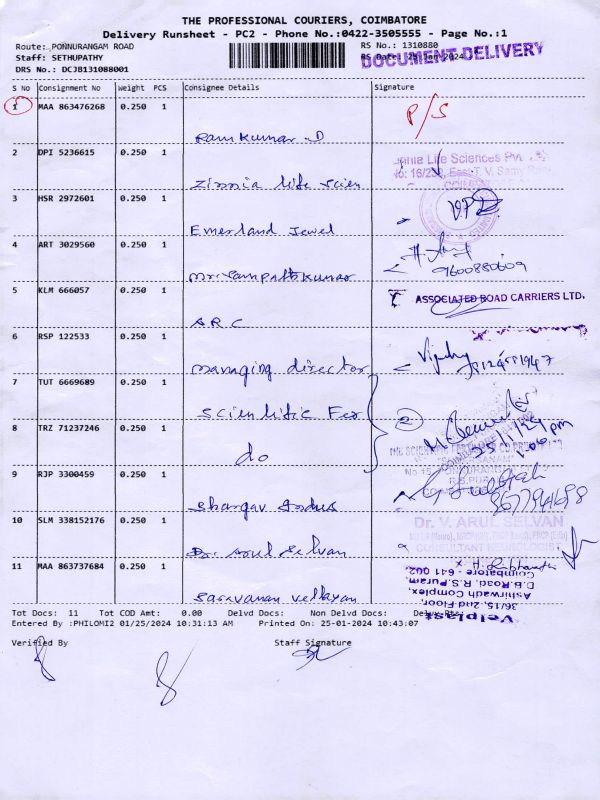 THE PROFESSIONAL COURIERS, COIMBATORE
Delivery Runsheet - PC2 - Phone No.:0422-3505555 - Page No.:1
Route: PONNURANGAM ROAD
RS No.: 1310880
DOCUMENT DELIVERY
Staff: SETHUPATHY
RS Date: 25-Jan-2024
DRS No.: DCJB131088001
S No Consignment No Weight PCS Consignee Details Signature
1 MAA 863476268 0.250 1
Ramkumar .D
P/S
2 DPI 5236615 0.250 1
Zinnia life Scien
Life Sciences Pvt
3 HSR 2972601 0.250 1
Emerland Jewel
4 ART 3029560 0.250 1
Mr. Sampathkumar
9600880609
5 KLM 666057 0.250 1
ARC
ASSOCIATED ROAD CARRIERS LTD.
6 RSP 122533 0.250 1
managing director
7 TUT 6669689 0.250 1
Scientific Fer
2
8 TRZ 71237246 0.250 1
do
25/1/24
9 RJP 3300459 0.250 1
10 SLM 338152176 0.250 1
Dr. Arul Selvan
Dr. V. ARUL SELVAN
CONSULTANT NEUROLOGIST
11 MAA 863737684 0.250 1
Saravanan Vellayan
Velplast
3615, 2nd Floor,
Ashirwadh Complex,
D.B.Road, R.S.Puram,
Coimbatore - 641 002.
Tot Docs: 11 Tot COD Amt: 0.00 Delvd Docs: Non Delvd Docs: Delux Pts:
Entered By :PHILOMI2 01/25/2024 10:31:13 AM Printed On: 25-01-2024 10:43:07
Verified By Staff Signature